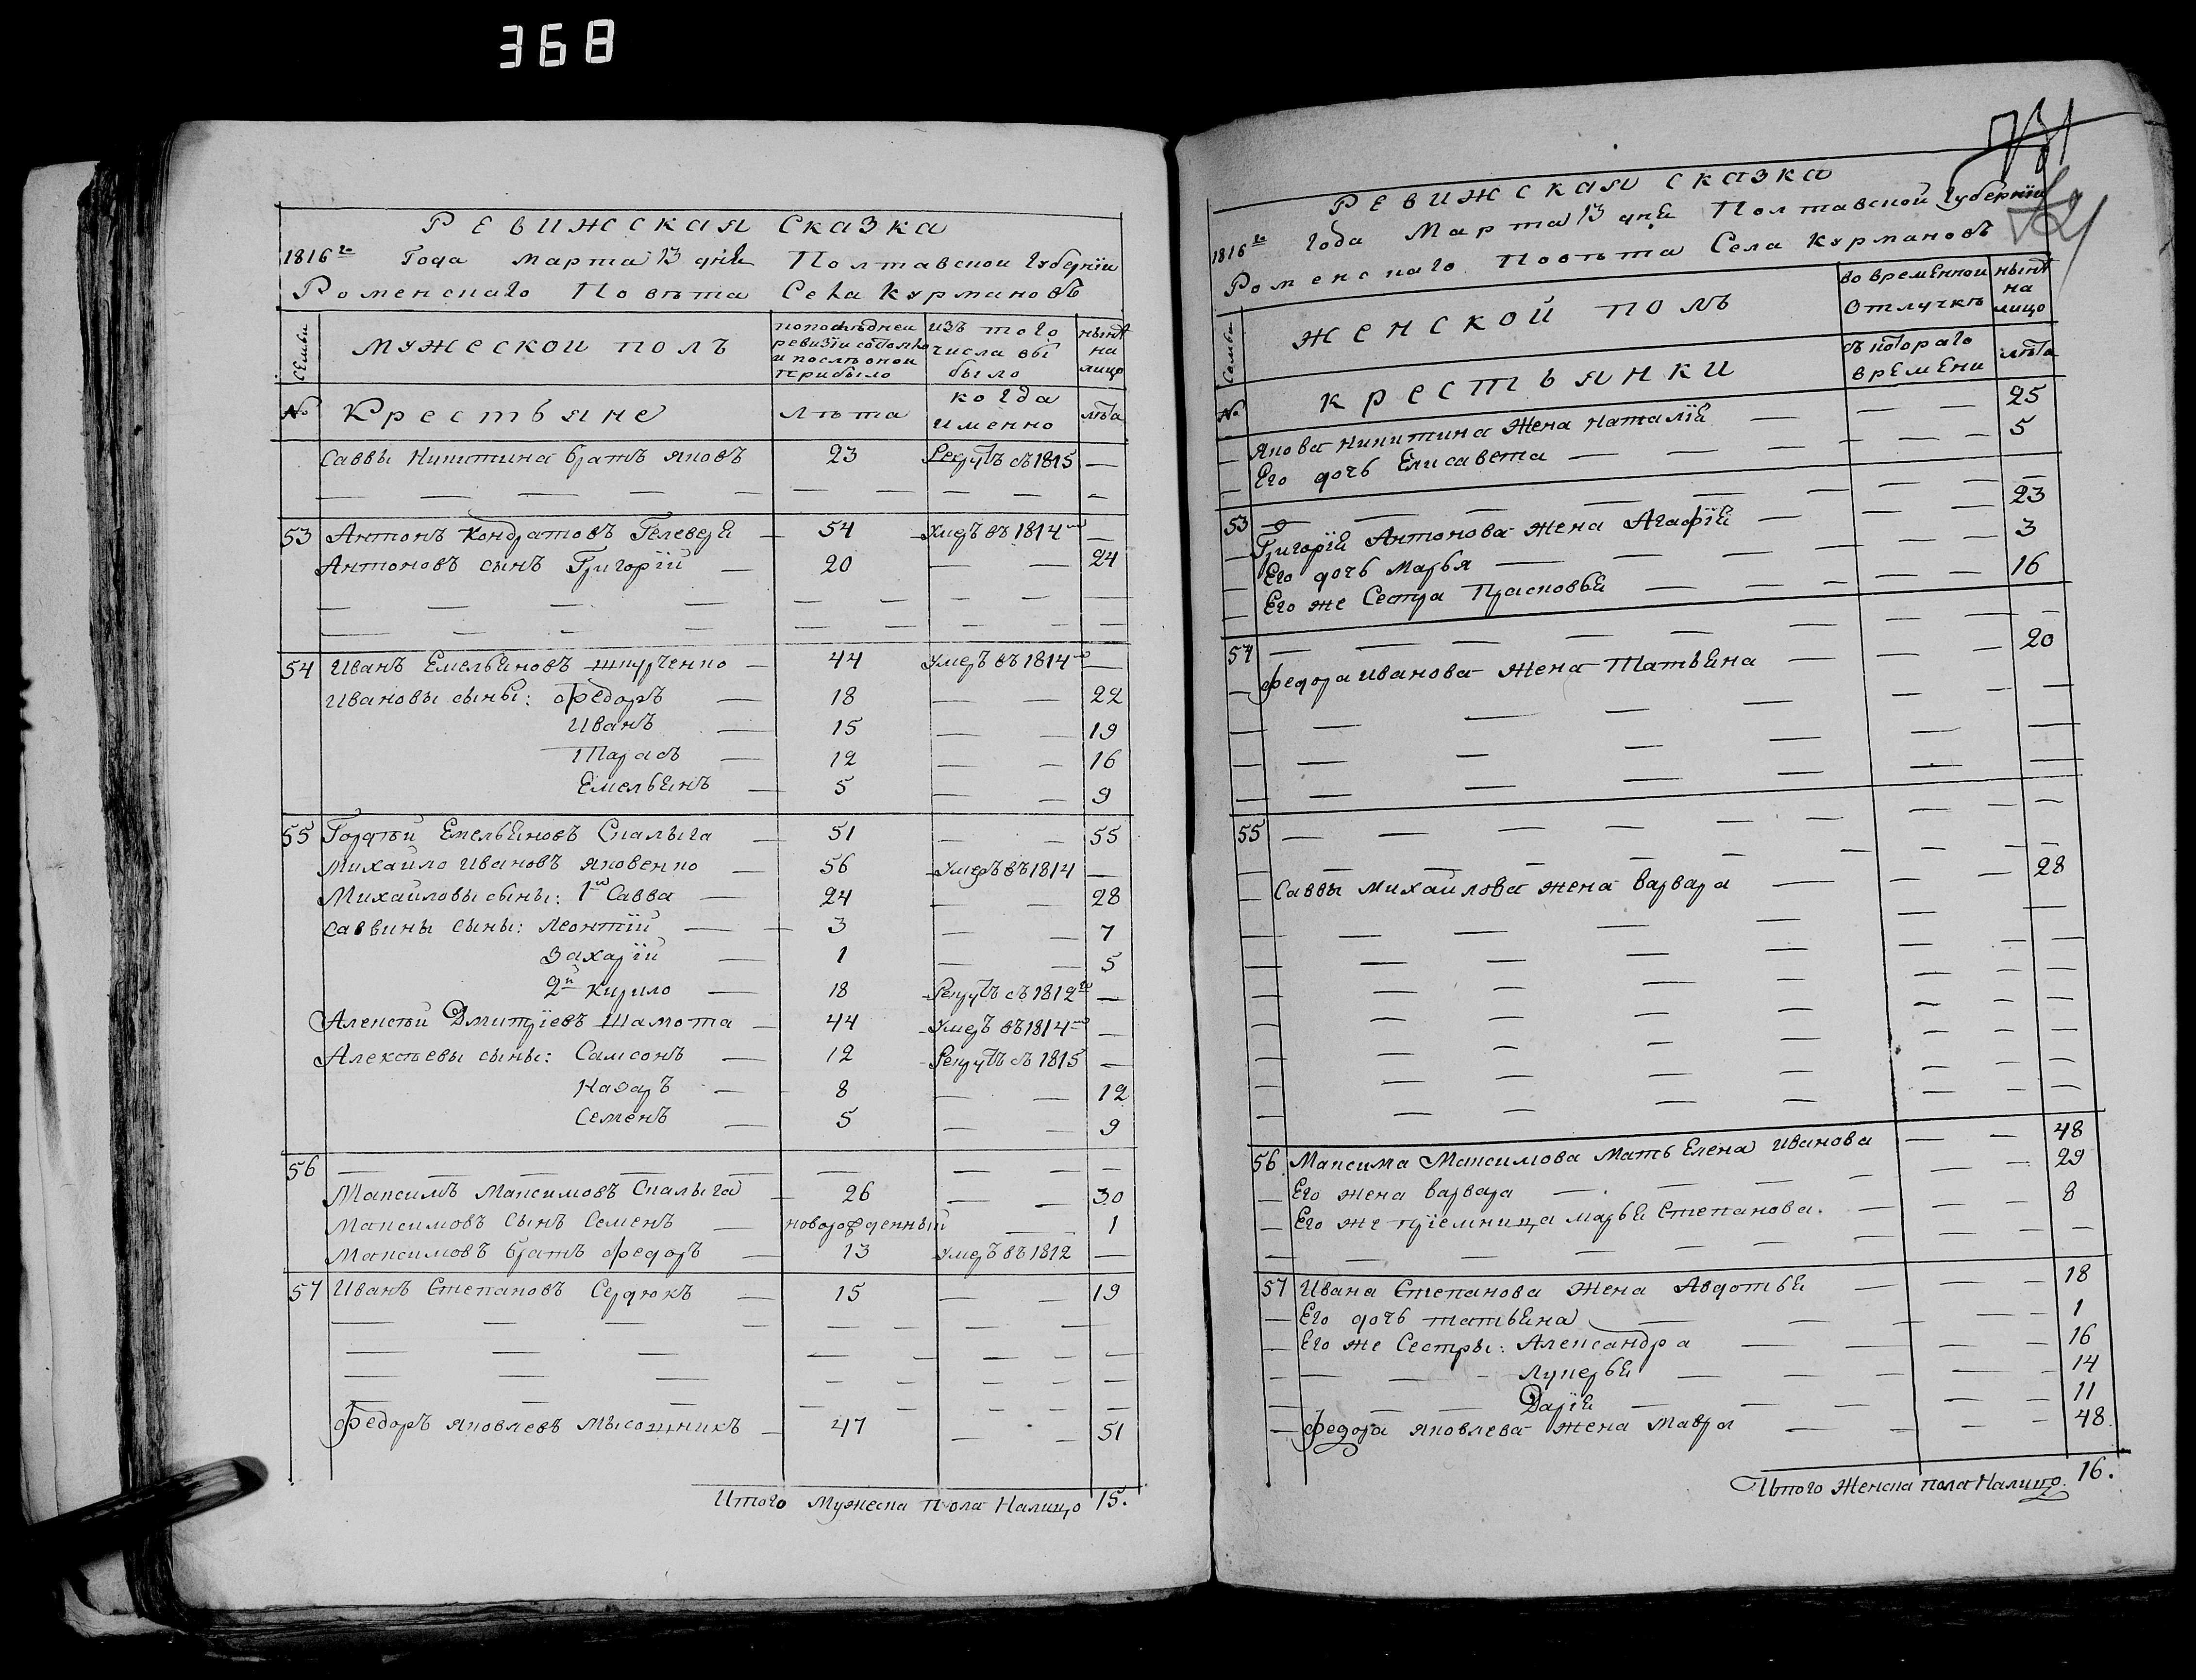 368
Ревижская Сказка
1816го Года Марта 13 дня Полтавской Губернїи
Роменскаго Повѣта Села Курмановъ
Семьи
мужескои полъ
попослѣднеи ревизїи состояло и послѣ оной прибыло
изъ того числа выбыло
нынѣ на лицо
№
Крестьяне
лѣта
когда именно
лѣта
Саввы Никитина братъ Яковъ 23 Рекрутъ съ 1815 —
53 Антонъ Кондратовъ Телеверя — 54 умеръ въ 1814м —
Антоновъ сынъ Григорїй — 20 — — 24
54 Иванъ Емельяновъ Шкурченко — 44 умеръ въ 1814м —
Ивановы сыны: Федоръ — 18 — — 22
Иванъ — 15 — — 19
Тарасъ — 12 — — 16
Емельянъ — 5 — — 9
55 Гордѣй Емельяновъ Скалыга — 51 — — 55
Михайло Ивановъ Яковенко — 56 умеръ въ 1814 —
Михайловы сыны: 1й Савва — 24 — — 28
Саввины сыны: Леонтїй — 3 — — 7
Захарїй — 1 — — 5
2й Кирило — 18 Рекрутъ съ 1812го —
Алексѣй Дмитрїевъ Шамота — 44 умеръ въ 1814м —
Алексѣевы сыны: Самсонъ — 12 Рекрутъ съ 1815 —
Назаръ — 8 — — 12
Семенъ — 5 — — 9
56
Максимъ Максимовъ Скалыга — 26 — — 30
Максимовъ сынъ Семенъ — новорожденный — 1
Максимовъ братъ Федоръ — 13 умеръ въ 1812 —
57 Иванъ Степановъ Сердюкъ — 15 — — 19
Федоръ Яковлевъ Мысошникъ — 47 — — 51
Итого Мужеска пола Налицо 15.
731
Ревижская сказка
1816го Года Марта 13 дня Полтавской Губернїи
Роменскаго Повѣта Села Курмановъ
Семьи
женской полъ
во временной отлучкѣ
нынѣ на лицо
№
крестьянки
съ котораго времени
лѣта
Якова Никитина Жена Наталїя — — — 25
Его дочь Елисавета — — — 5
53
Григорїя Антонова Жена Агафїя — — — 23
Его дочь Марья — — — 3
Его же Сестра Прасковья — — — 16
54
Федора Иванова Жена Татьяна — — — 20
55
Саввы Михайлова жена Варвара — — — 28
56 Максима Максимова мать Елена Иванова — — 48
Его жена Варвара — — — 29
Его же прїемница Марья Степанова. — — 8
57 Ивана Степанова Жена Авдотья — — — 18
Его дочь Татьяна — — — 1
Его же Сестры: Александра — — — 16
Лукерья — — — 14
Дарїя — — — 11
Федора Яковлева жена Мавра — — — 48.
Итого Женска пола Налицо. 16.